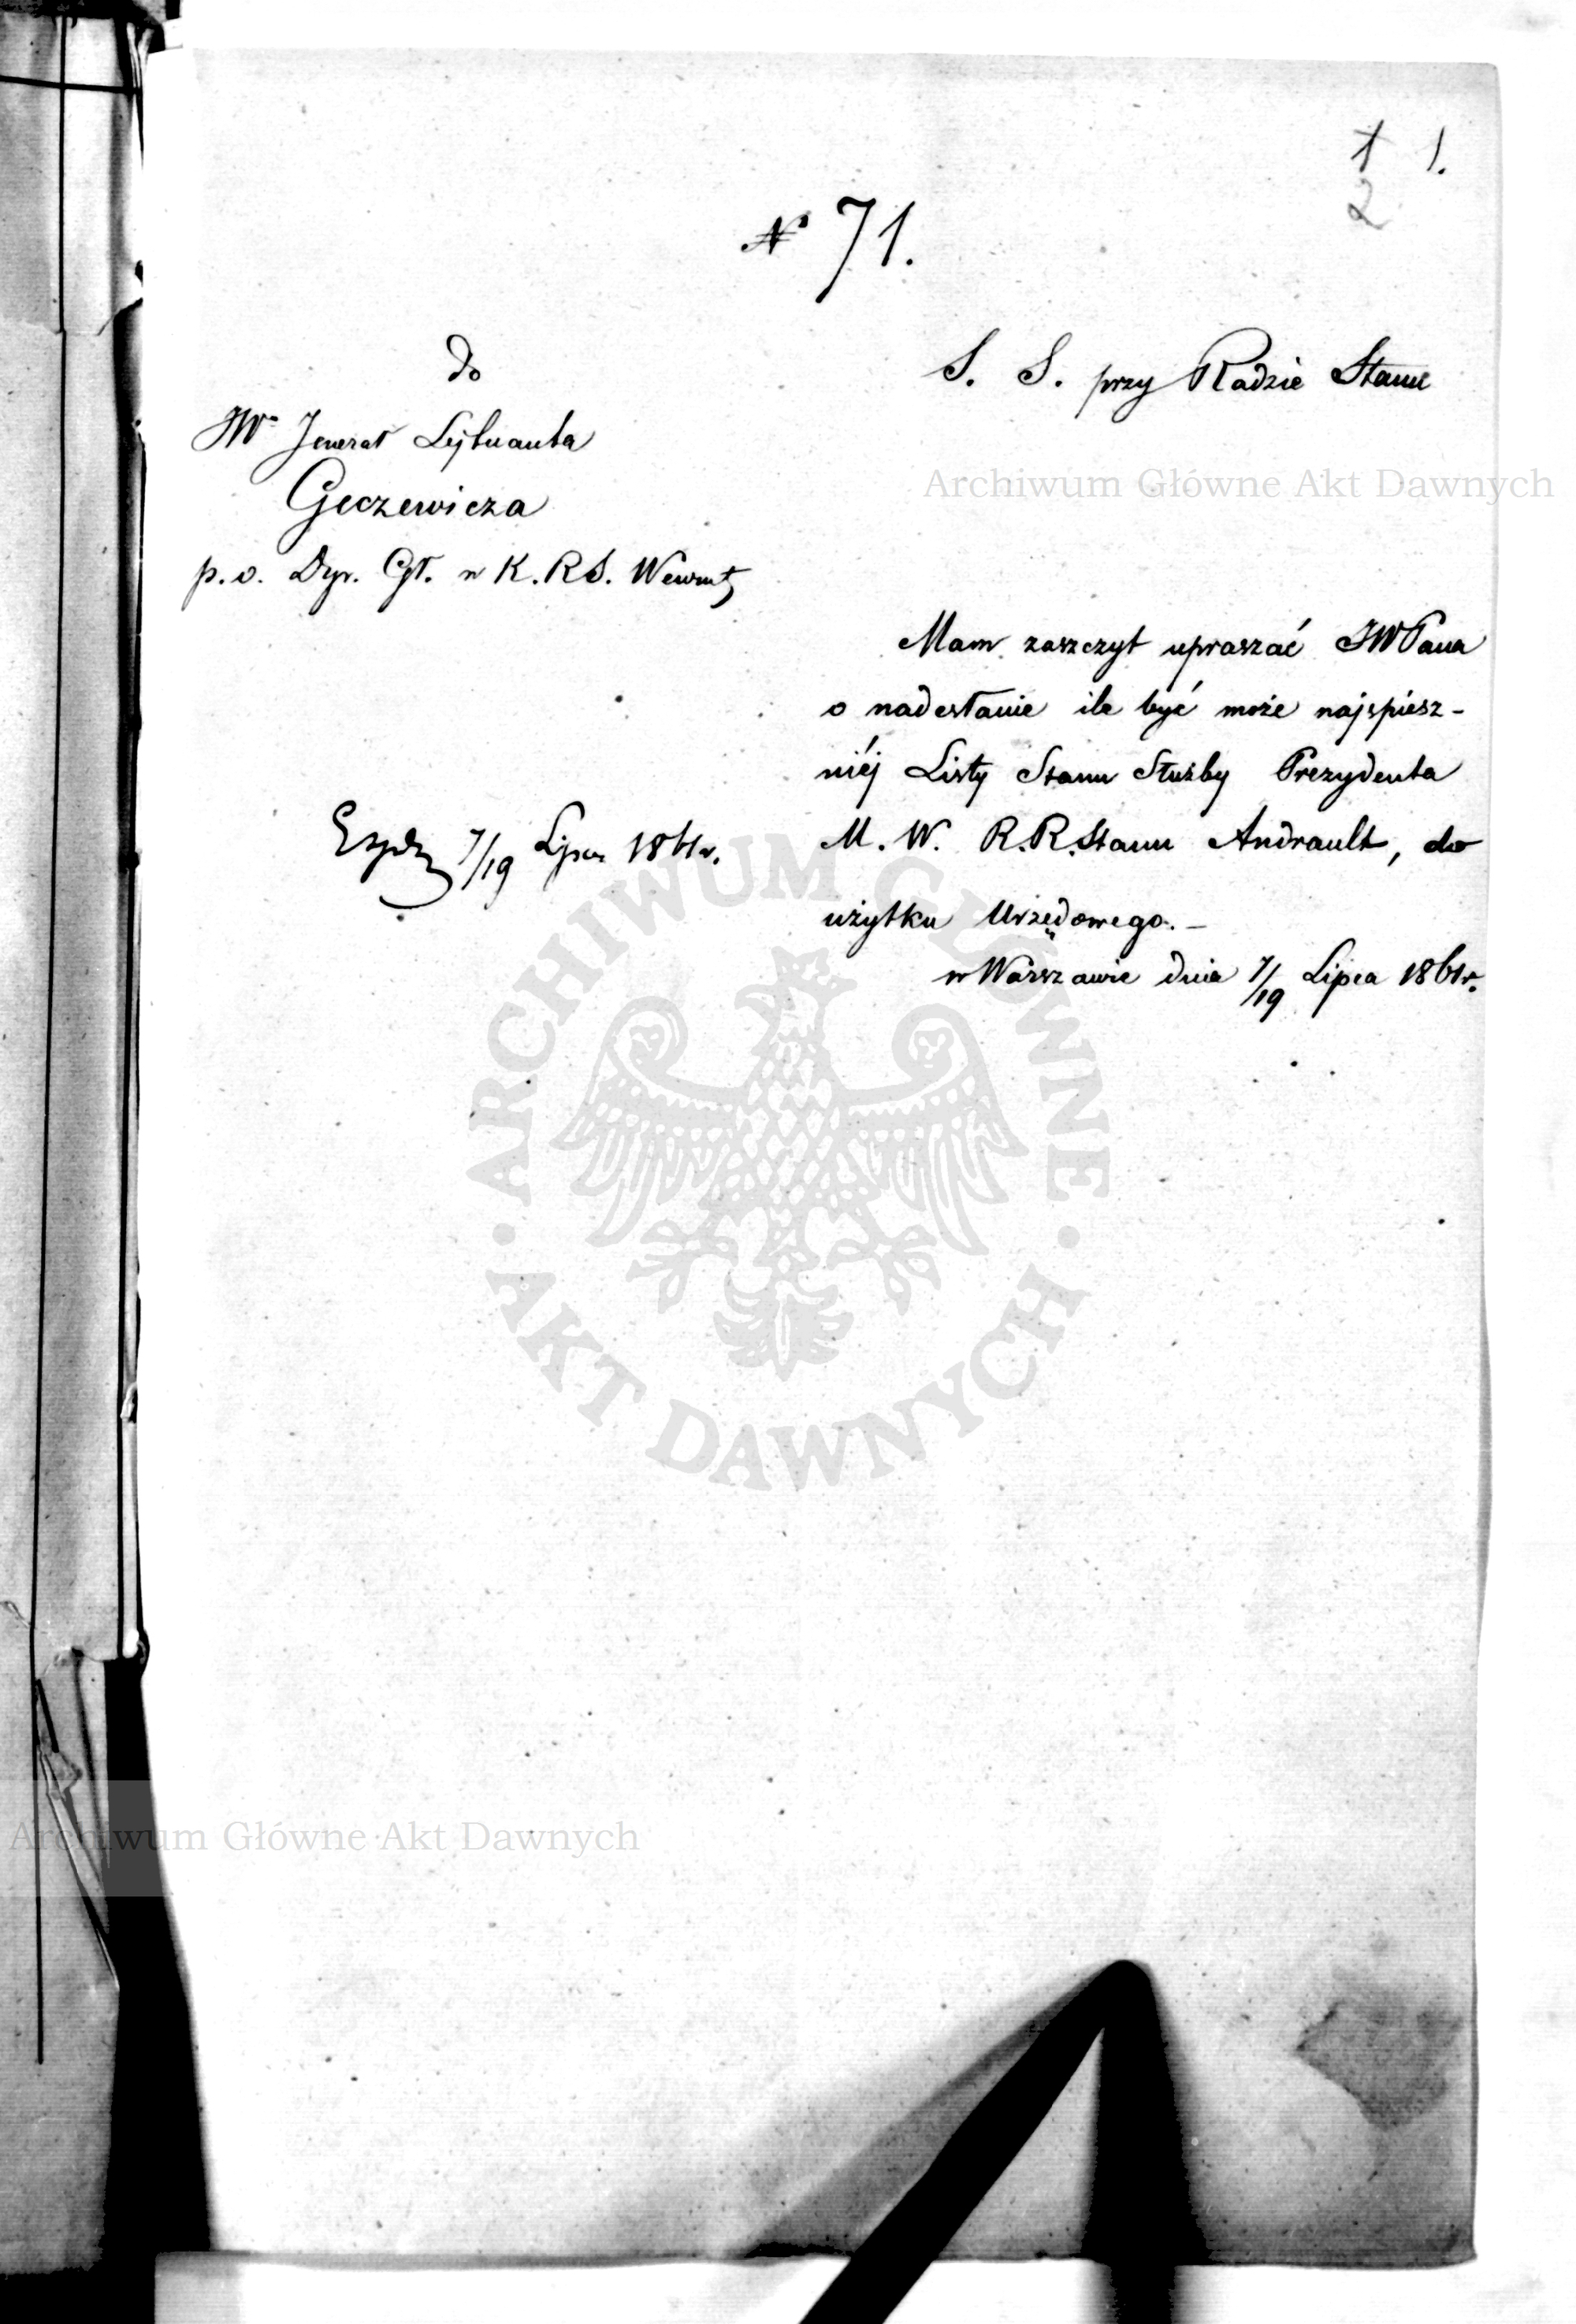 1 1.
2
№ 71.
Do
JW. Jenerał Lejtnanta
Geczewicza
p. o. Dyr. Gł. w K. R. S. Wewnęt
S. S. przy Radzie Stanu
Archiwum Główne Akt Dawnych
Mam zaszczyt upraszać JWPana
o nadesłanie ile być może najspiesz-
niéj Listy Stanu Służby Prezydenta
M. W. R. R. Stanu Andrault, do
użytku Urzędowego. –
w Warszawie dnia 7/19 Lipca 1861 r.
7/19 Lipca 1861 r.
ARCHIWUM GŁÓWNE · AKT DAWNYCH ·
Archiwum Główne Akt Dawnych